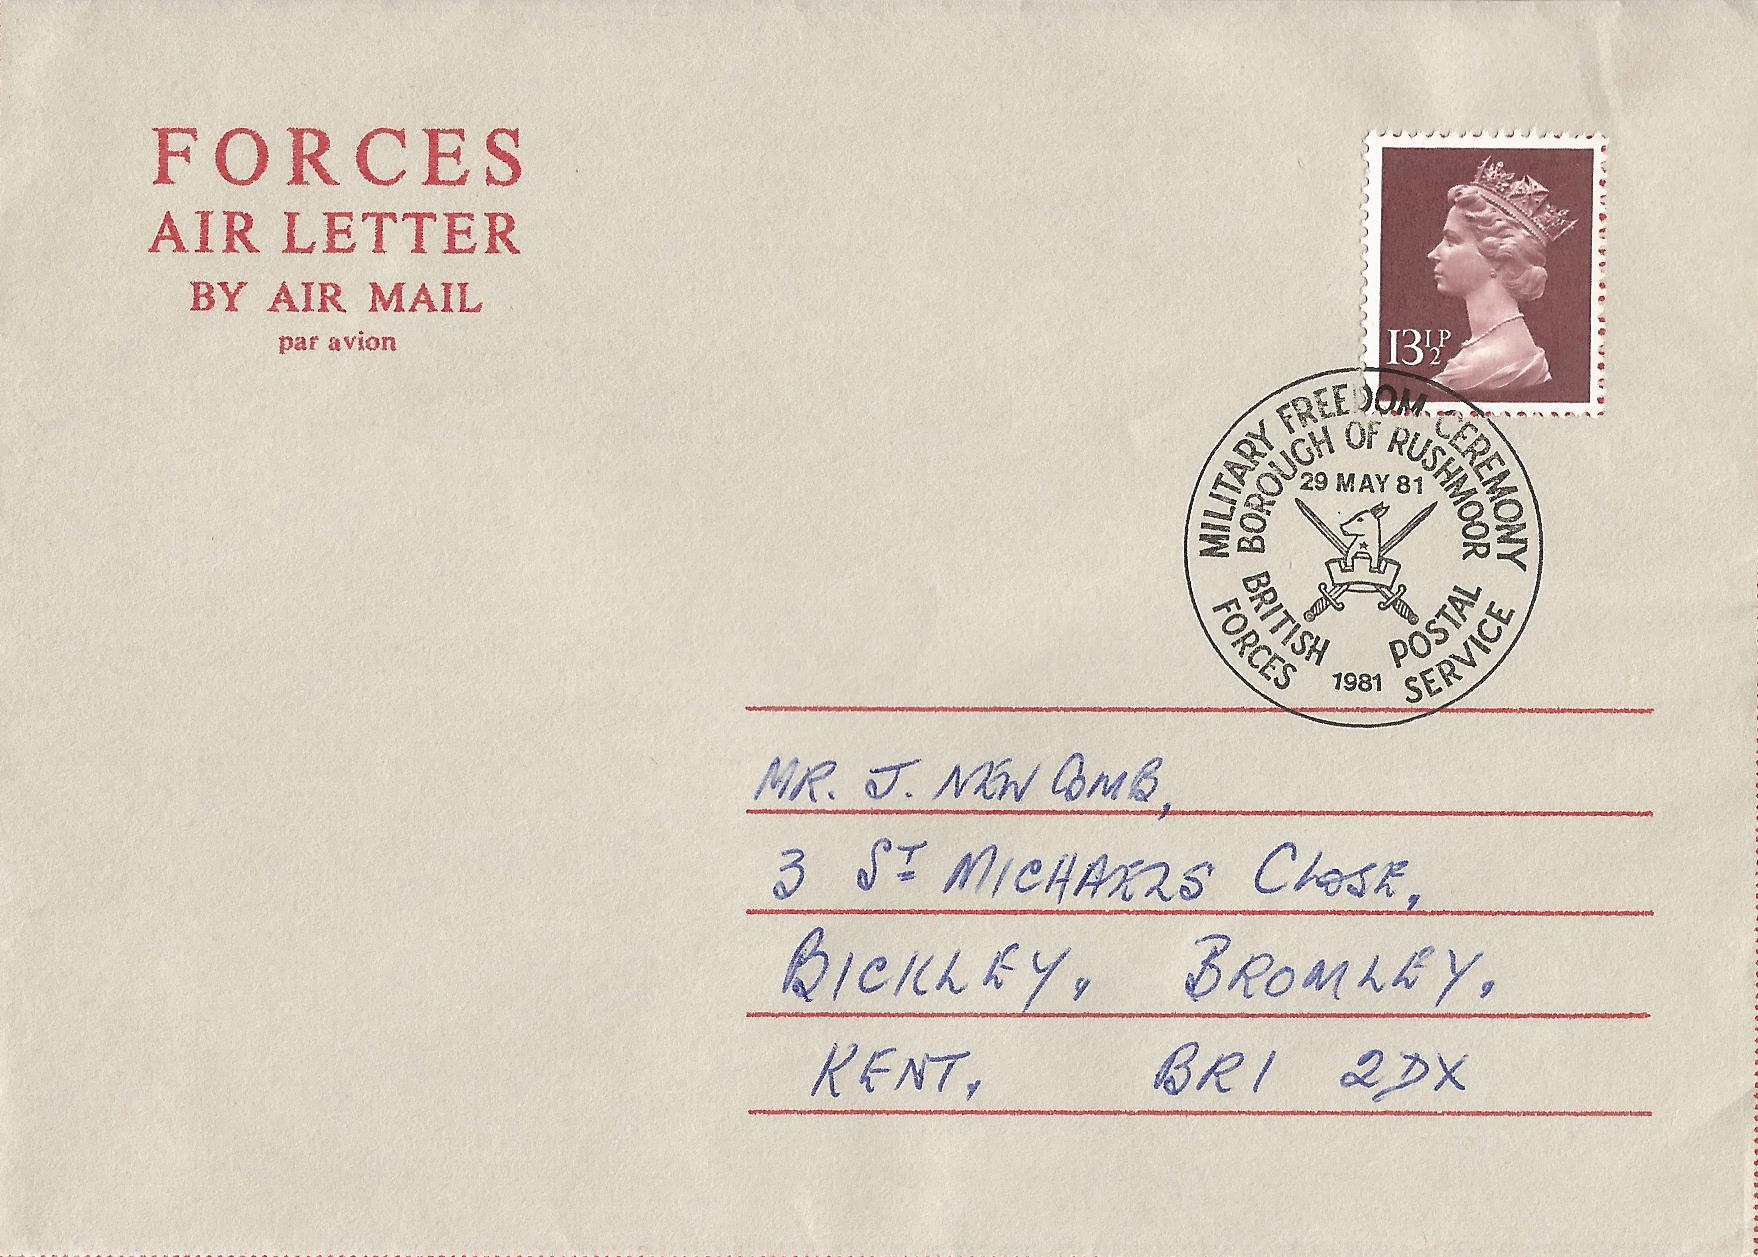 FORCES
AIR LETTER
BY AIR MAIL
par avion
13½P
MILITARY FREEDOM CEREMONY
BOROUGH OF RUSHMOOR
29 MAY 81
BRITISH POSTAL
FORCES SERVICE
1981
MR. J. NEWCOMB,
3 ST MICHAELS CLOSE,
BICKLEY, BROMLEY,
KENT, BR1 2DX